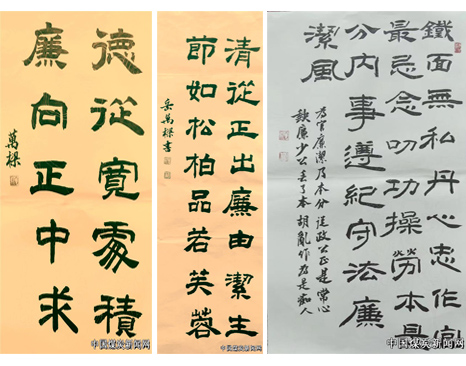 德從寬處積
廉向正中求
萬樑
中国煤炭新闻网
清從正出廉由潔生
節如松柏品若芙蓉
岳萬樑書
中国煤炭新闻网
鐵面無私丹心忠作官
最忌念叨功操勞本是
分内事遵紀守法廉
潔風
為官廉潔乃本分從政公正是常心
缺廉少公丢了本胡亂作為是痴人
中国煤炭新闻网